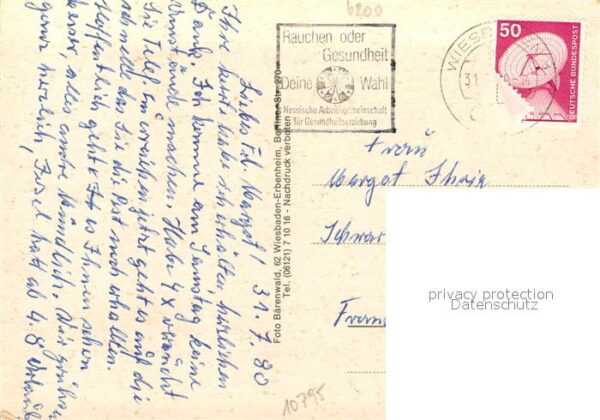 6200
Rauchen oder
Gesundheit
Deine Wahl
Hessische Arbeitsgemeinschaft
für Gesundheitserziehung
WIESB
31
50
DEUTSCHE BUNDESPOST
Liebe Fr. Margot! 31.7.80
Ihre Karte habe ich erhalten herzlichen
Dank. Ich komme am Samstag keine
Umstände machen. Habe 4 x versucht
Sie telef. zu erreichen, jetzt geht es auf die
schnelle das Sie die Post noch erhalten.
Hoffentlich geht es Ihnen schon
besser, alles andre mündlich. Sie grüßen
ganz herzlich, hat ab 4.8 Urlaub
Foto Bärenwald, 62 Wiesbaden-Erbenheim, Berliner Str. 270
Tel. (06121) 7 10 16 - Nachdruck verboten
Frau
Margot
Schwar
Fran
privacy protection
Datenschutz
10795